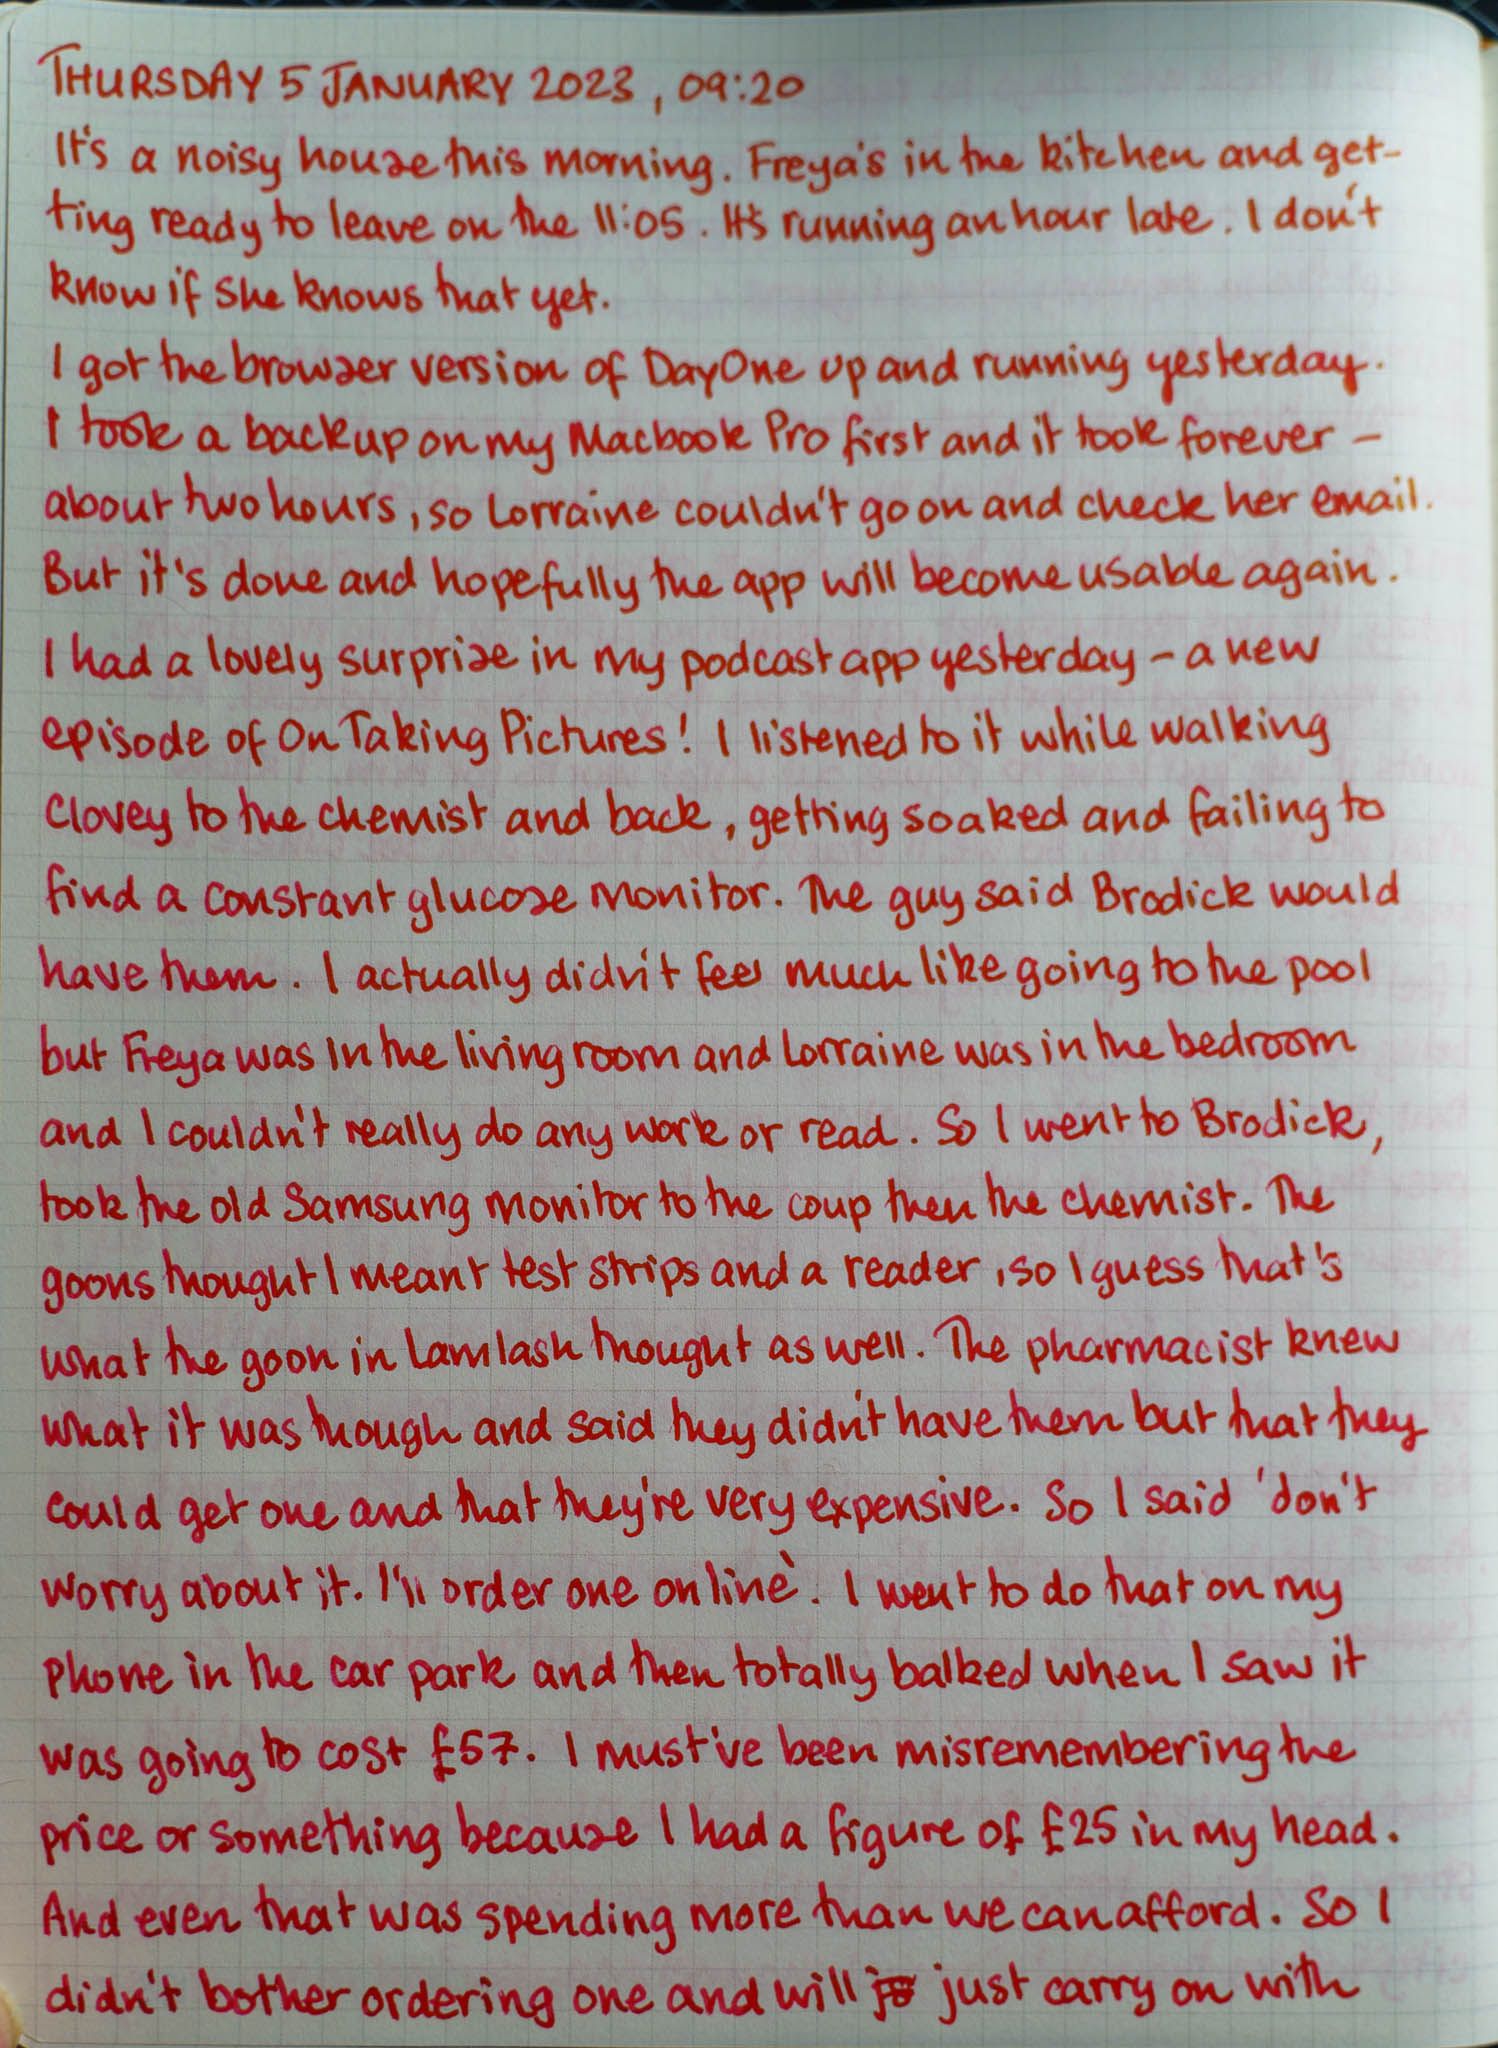 THURSDAY 5 JANUARY 2023, 09:20
It's a noisy house this morning. Freya's in the kitchen and get-
ting ready to leave on the 11:05. It's running an hour late. I don't
know if she knows that yet.
I got the browser version of DayOne up and running yesterday.
I took a backup on my Macbook Pro first and it took forever –
about two hours, so Lorraine couldn't go on and check her email.
But it's done and hopefully the app will become usable again.
I had a lovely surprise in my podcast app yesterday – a new
episode of On Taking Pictures! I listened to it while walking
Clovey to the chemist and back, getting soaked and failing to
find a constant glucose monitor. The guy said Brodick would
have them. I actually didn't feel much like going to the pool
but Freya was in the living room and Lorraine was in the bedroom
and I couldn't really do any work or read. So I went to Brodick,
took the old Samsung monitor to the coup then the chemist. The
goons thought I meant test strips and a reader, so I guess that's
what the goon in Lamlash thought as well. The pharmacist knew
what it was though and said they didn't have them but that they
could get one and that they're very expensive. So I said 'don't
worry about it. I'll order one online'. I went to do that on my
phone in the car park and then totally balked when I saw it
was going to cost £57. I must've been misremembering the
price or something because I had a figure of £25 in my head.
And even that was spending more than we can afford. So I
didn't bother ordering one and will just carry on with